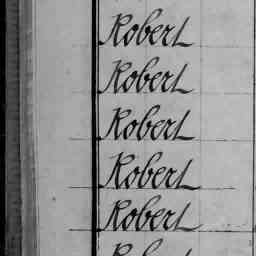 Robert
Robert
Robert
Robert
Robert
Robert